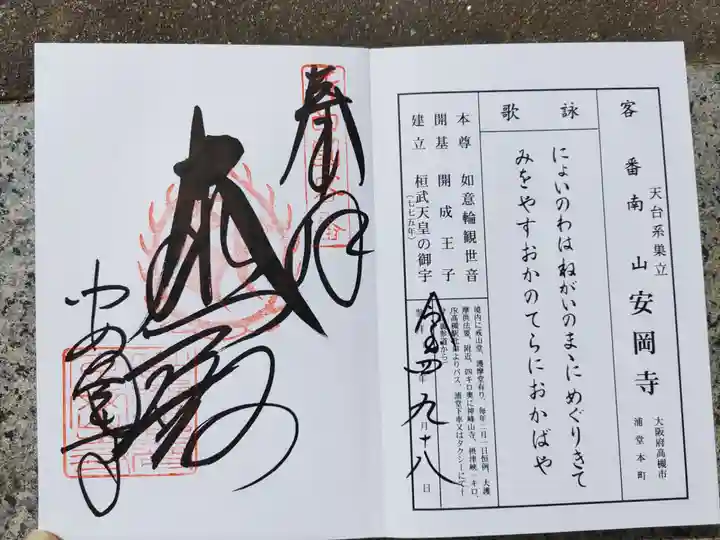 客番
南山 安岡寺
天台系単立
大阪府高槻市
浦堂本町
詠歌
にょいのわは ねがいのまゝに めぐりきて
みをやすおかの てらにおかばや
本尊 如意輪観世音
開基 開成王子
建立 桓武天皇の御宇
(七七五年)
境内に戒山堂、護摩堂有り、毎年二月一日恒例、大護
摩供法要、附近、四キロ奥に神峰山寺、摂津峡一キロ、
JR高槻駅北よりバス、浦堂下車又はタクシーにて
令和四年九月十八日
奉拝
安岡寺